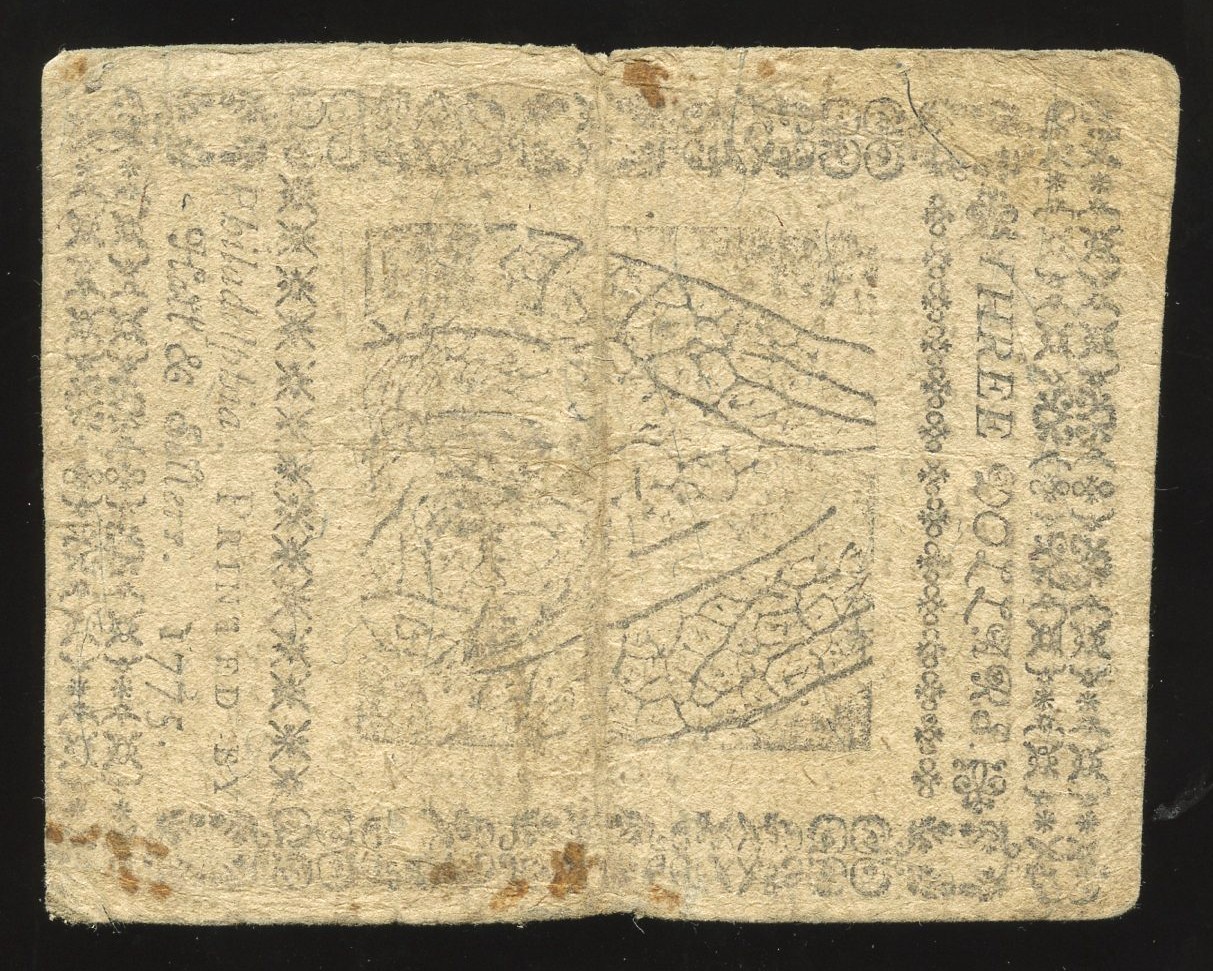 THREE DOLLARS.
Philadelphia PRINTED BY
Hall & Sellers. 1775.